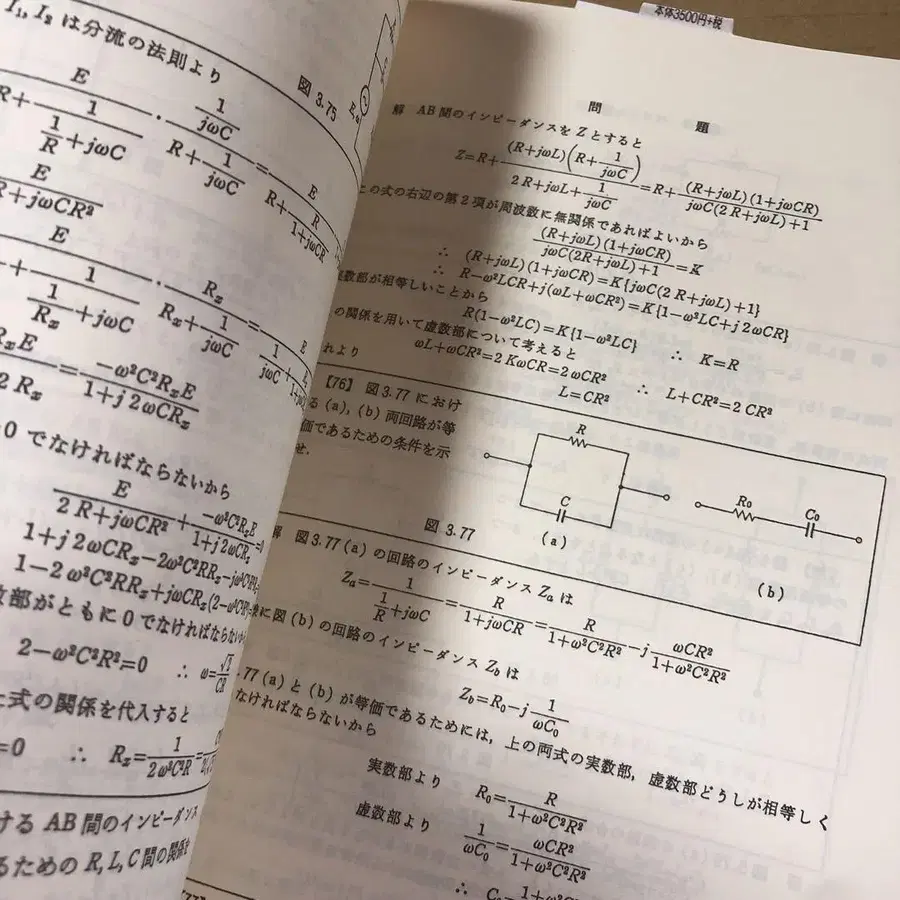 I₁, I₂ は分流の法則より
図 3.75
E/(R+1/(1/R+jωC))·(1/jωC)/(R+1/jωC)=E/(R+R/(1+jωCR
E/(R+jωCR²
E/(+1/(1/Rₓ+jωC))·Rₓ/(Rₓ+1/jωC)=
RₓE/2Rₓ=−ω²C²RₓE/(1+j2ωCRₓ)
0 でなければならないから
E/(2R+jωCR²)+−ω²C²RₓE/(1+j2ωCRₓ)=0
1+j2ωCRₓ−2ω²C²RRₓ−
1−2ω²C²RRₓ+jωCRₓ(2−ω²C²R²
数部がともに0でなければならない
2−ω²C²R²=0 ∴ ω=√2/CR
上式の関係を代入すると
=0 ∴ Rₓ=1/(2ω²C²R)=
ける AB 間のインピーダンス
るための R, L, C 間の関係を
本体3500円+税
問題
解 AB 間のインピーダンスを Z とすると
Z=R+(R+jωL)(R+1/jωC)/(2R+jωL+1/jωC)=R+(R+jωL)(1+jωCR)/(jωC(2R+jωL)+1)
上の式の右辺の第2項が周波数に無関係であればよいから
(R+jωL)(1+jωCR)/(jωC(2R+jωL)+1)=K
∴ (R+jωL)(1+jωCR)=K{jωC(2R+jωL)+1}
∴ R−ω²LCR+j(ωL+ωCR²)=K{1−ω²LC+j2ωCR}
実数部が相等しいことから
R(1−ω²LC)=K{1−ω²LC} ∴ K=R
の関係を用いて虚数部について考えると
ωL+ωCR²=2KωCR=2ωCR² ∴ L+CR²=2CR²
れより
L=CR²
【76】 図3.77 におけ
る (a), (b) 両回路が等
価であるための条件を示
せ.
R
C
(a)
R₀
C₀
(b)
図 3.77
解 図3.77(a) の回路のインピーダンス Zₐ は
Zₐ=1/(1/R+jωC)=R/(1+jωCR)=R/(1+ω²C²R²)−jωCR²/(1+ω²C²R²)
に図(b)の回路のインピーダンス Z_b は
Z_b=R₀−j1/ωC₀
.77(a) と (b) が等価であるためには, 上の両式の実数部, 虚数部どうしが相等しく
なければならないから
実数部より R₀=R/(1+ω²C²R²)
虚数部より 1/ωC₀=ωCR²/(1+ω²C²R²)
∴